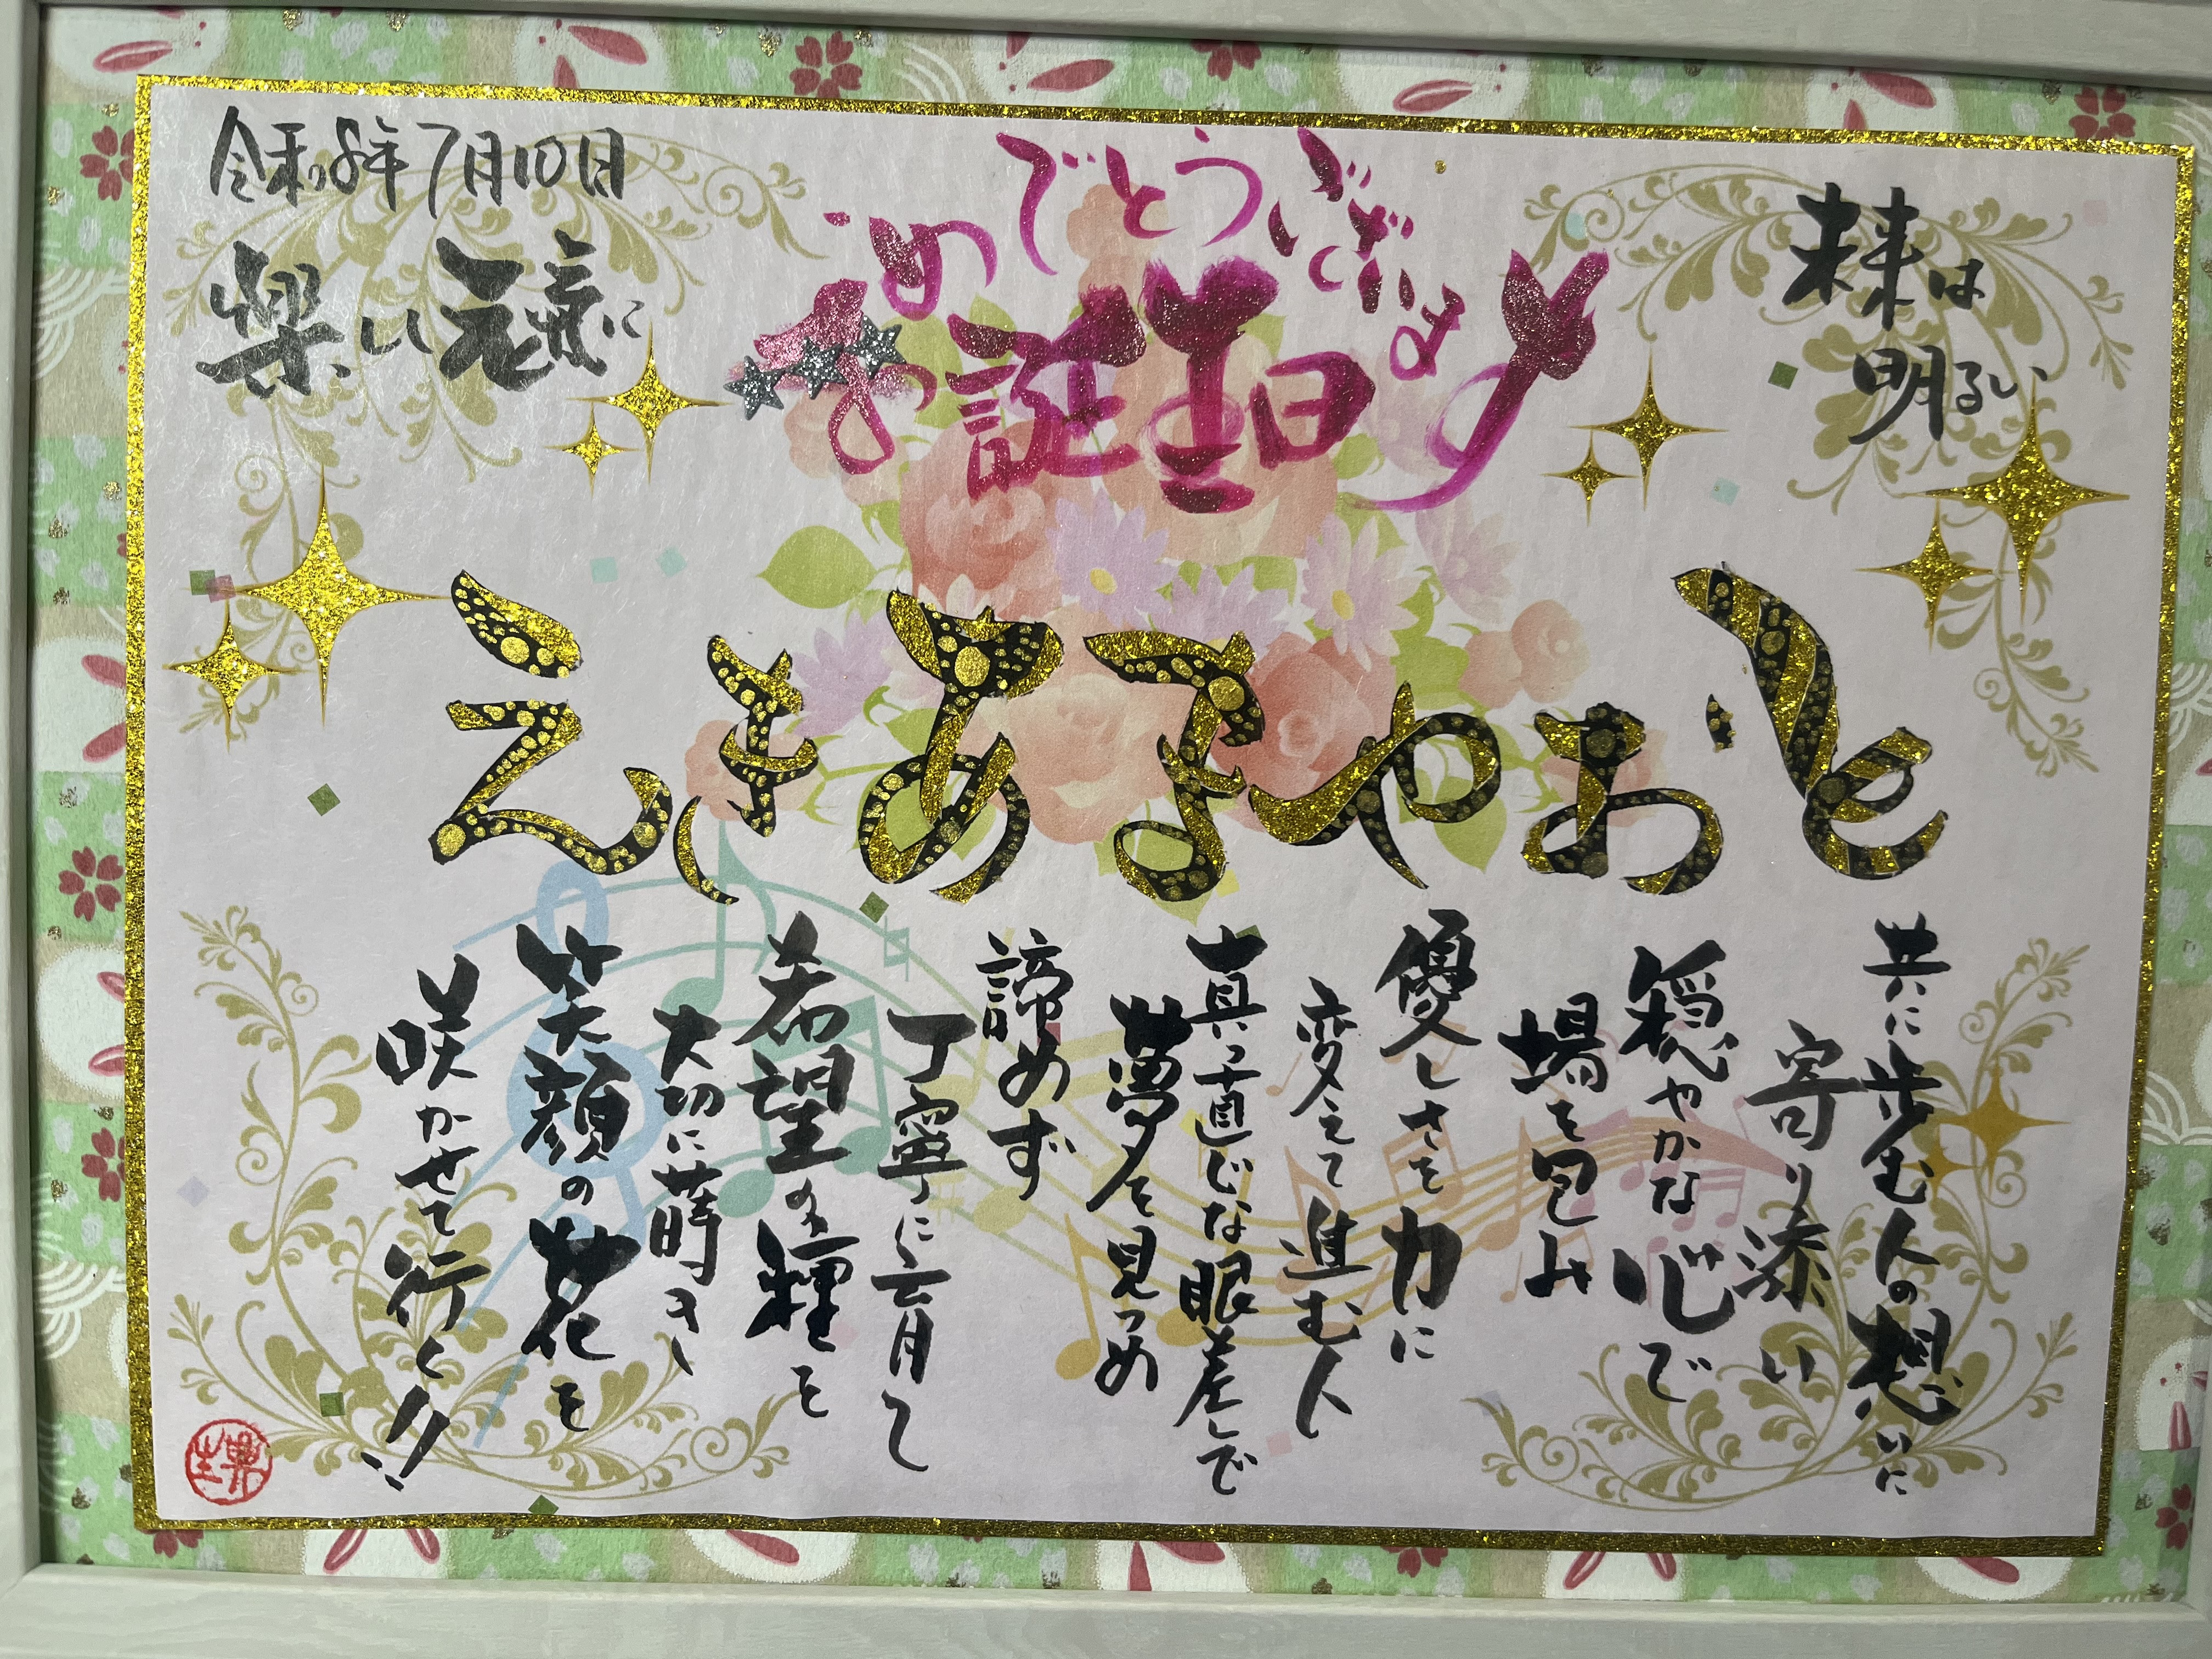 未来は
明るい
お誕生日
おめでとうございます
令和8年7月10日
楽しく元気に
とおやまあきえ
共に歩む人の想いに
寄り添い
穏やかな心で
場を包み
優しさを力に
変えて進む人
真っ直ぐな眼差しで
夢を見つめ
諦めず
丁寧に育て
希望の種を
大切に蒔き
笑顔の花を
咲かせて行く!!